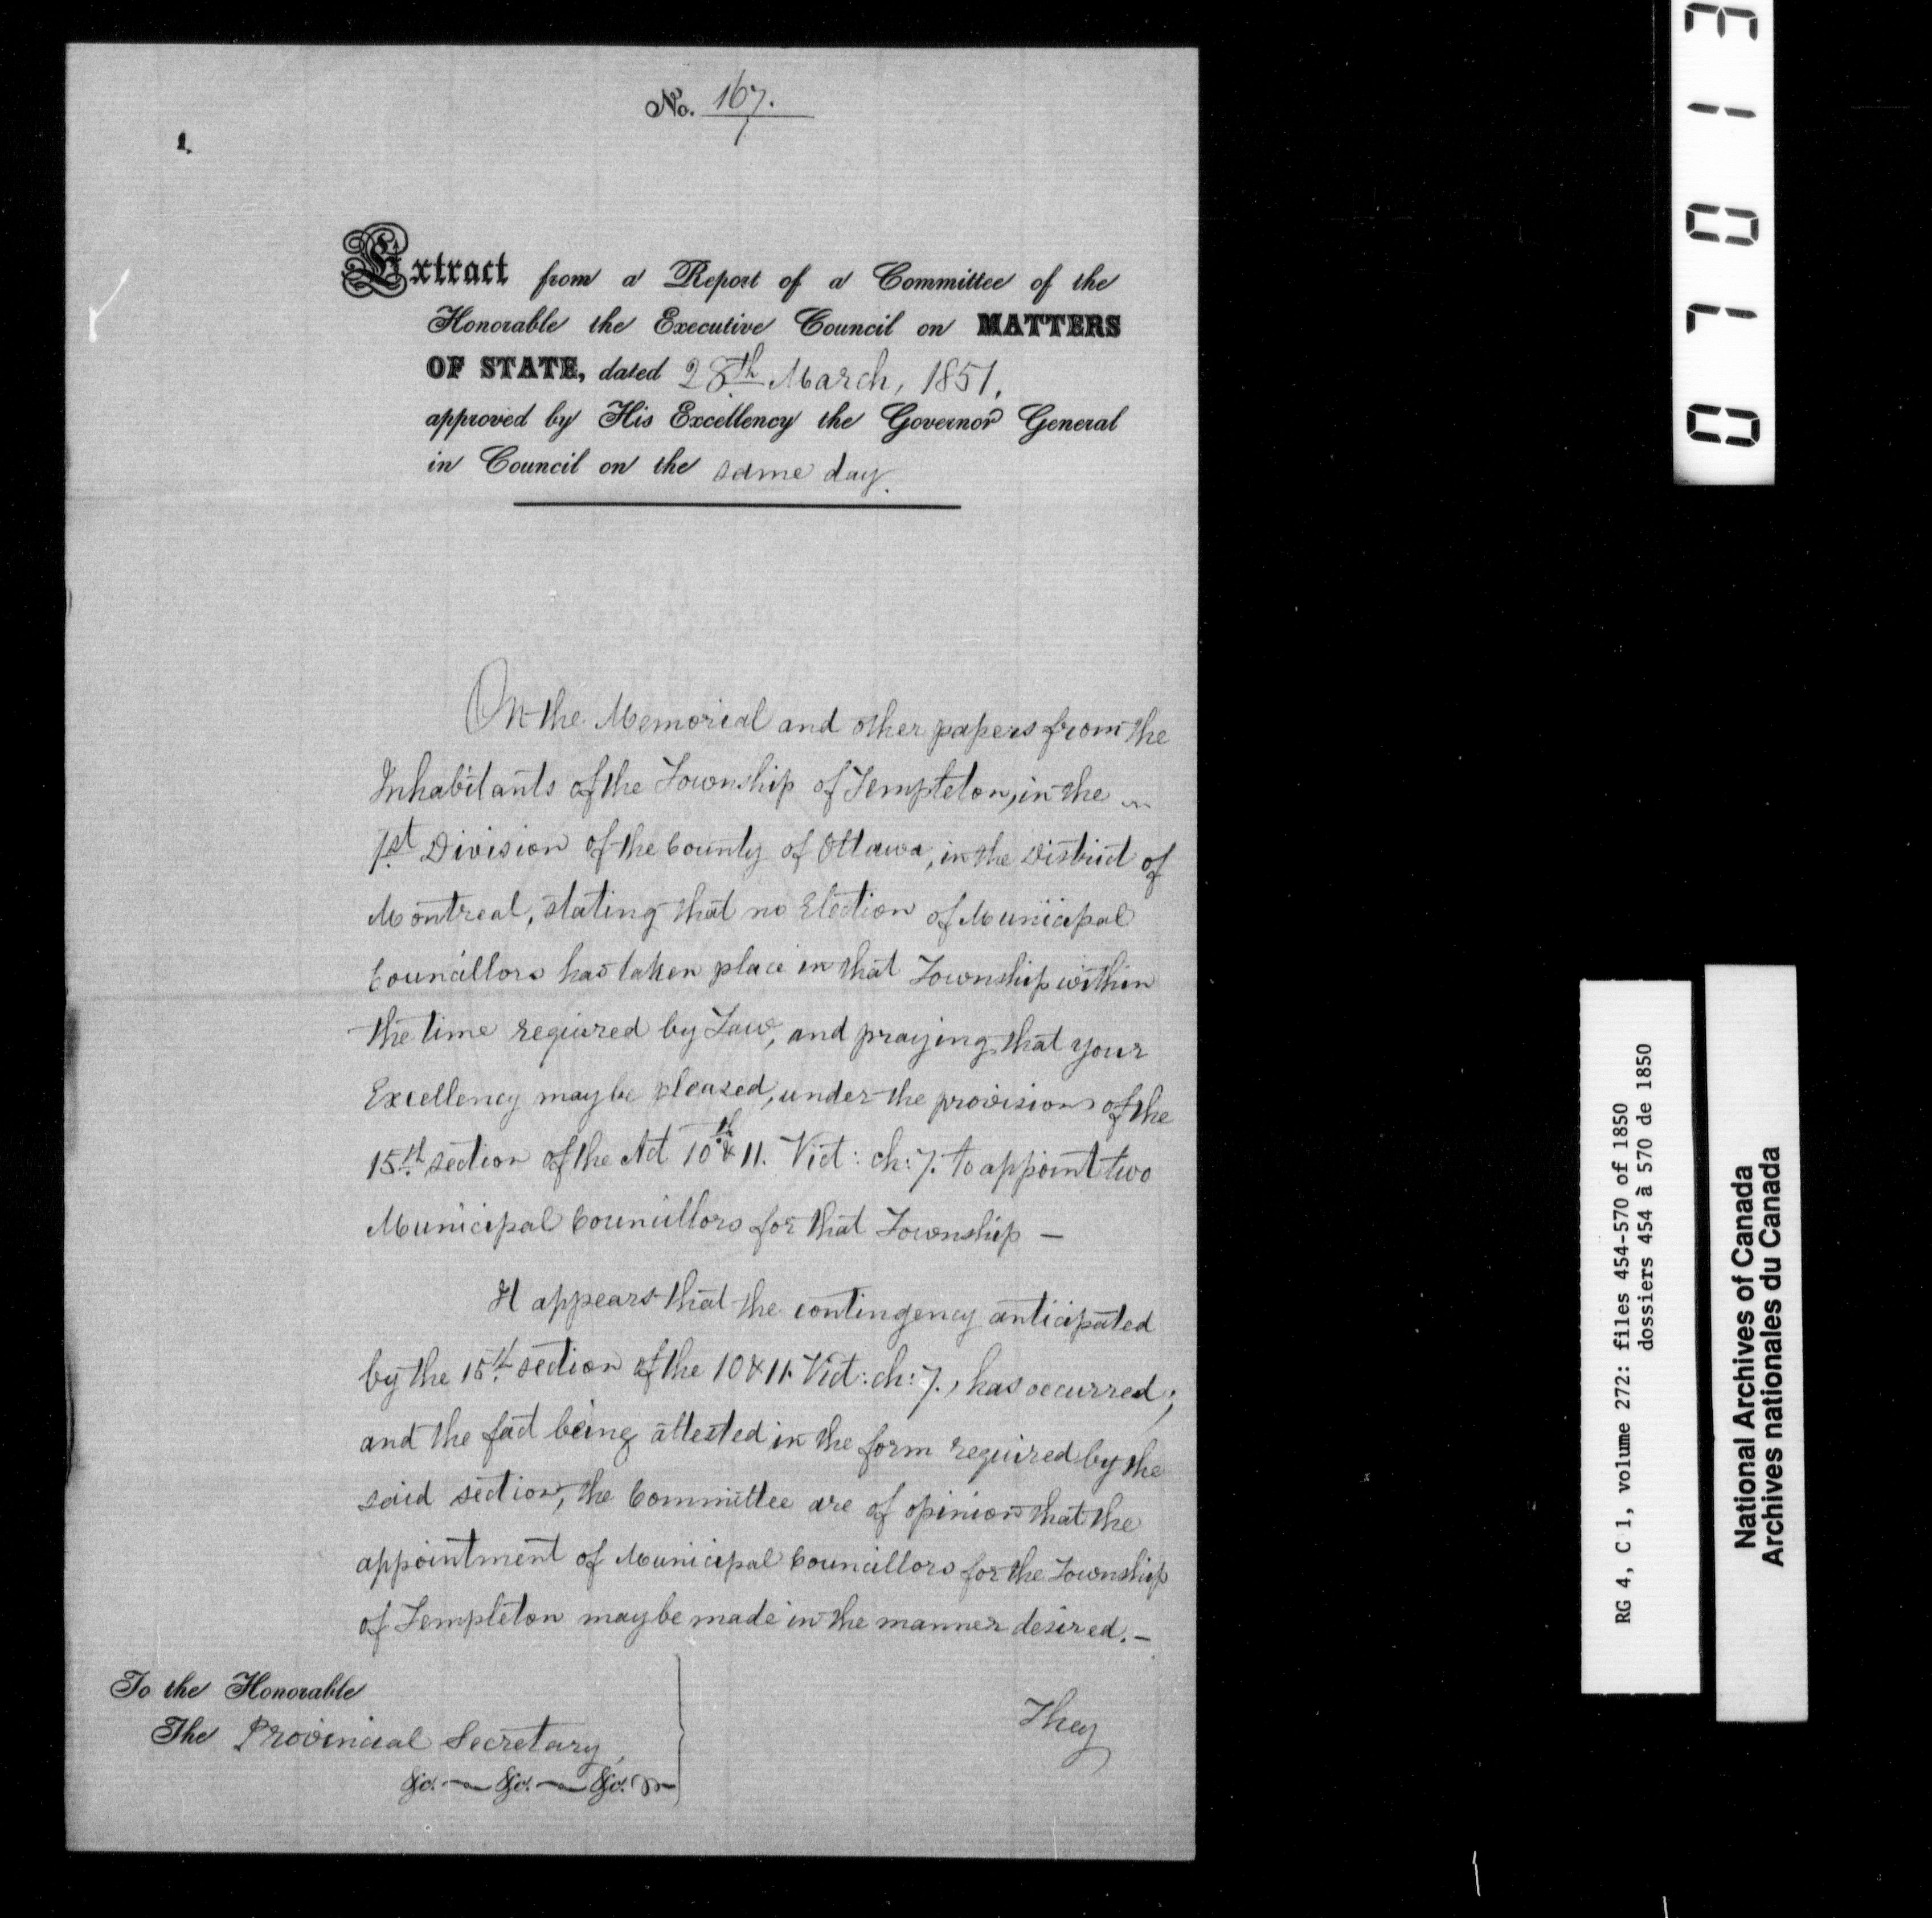 No. 167.
1.
Extract from a Report of a Committee of the
Honorable the Executive Council on MATTERS
OF STATE, dated 28th March, 1851,
approved by His Excellency the Governor General
in Council on the same day.
On the Memorial and other papers from the
Inhabitants of the Township of Templeton, in the
1st Division of the County of Ottawa, in the District of
Montreal, stating that no Election of Municipal
Councillors has taken place in that Township within
the time required by Law, and praying that your
Excellency may be pleased, under the provisions of the
15th section of the Act 10th & 11. Vict: ch: 7. to appoint two
Municipal Councillors for that Township —
It appears that the contingency anticipated
by the 15th section of the 10 & 11. Vict: ch: 7., has occurred;
and the fact being attested in the form required by the
said section, the Committee are of opinion that the
appointment of Municipal Councillors for the Township
of Templeton may be made in the manner desired. —
To the Honorable
The Provincial Secretary,
&c. — &c. — &c.
They
071013
RG 4, C 1, volume 272: files 454-570 of 1850
dossiers 454 à 570 de 1850
National Archives of Canada
Archives nationales du Canada